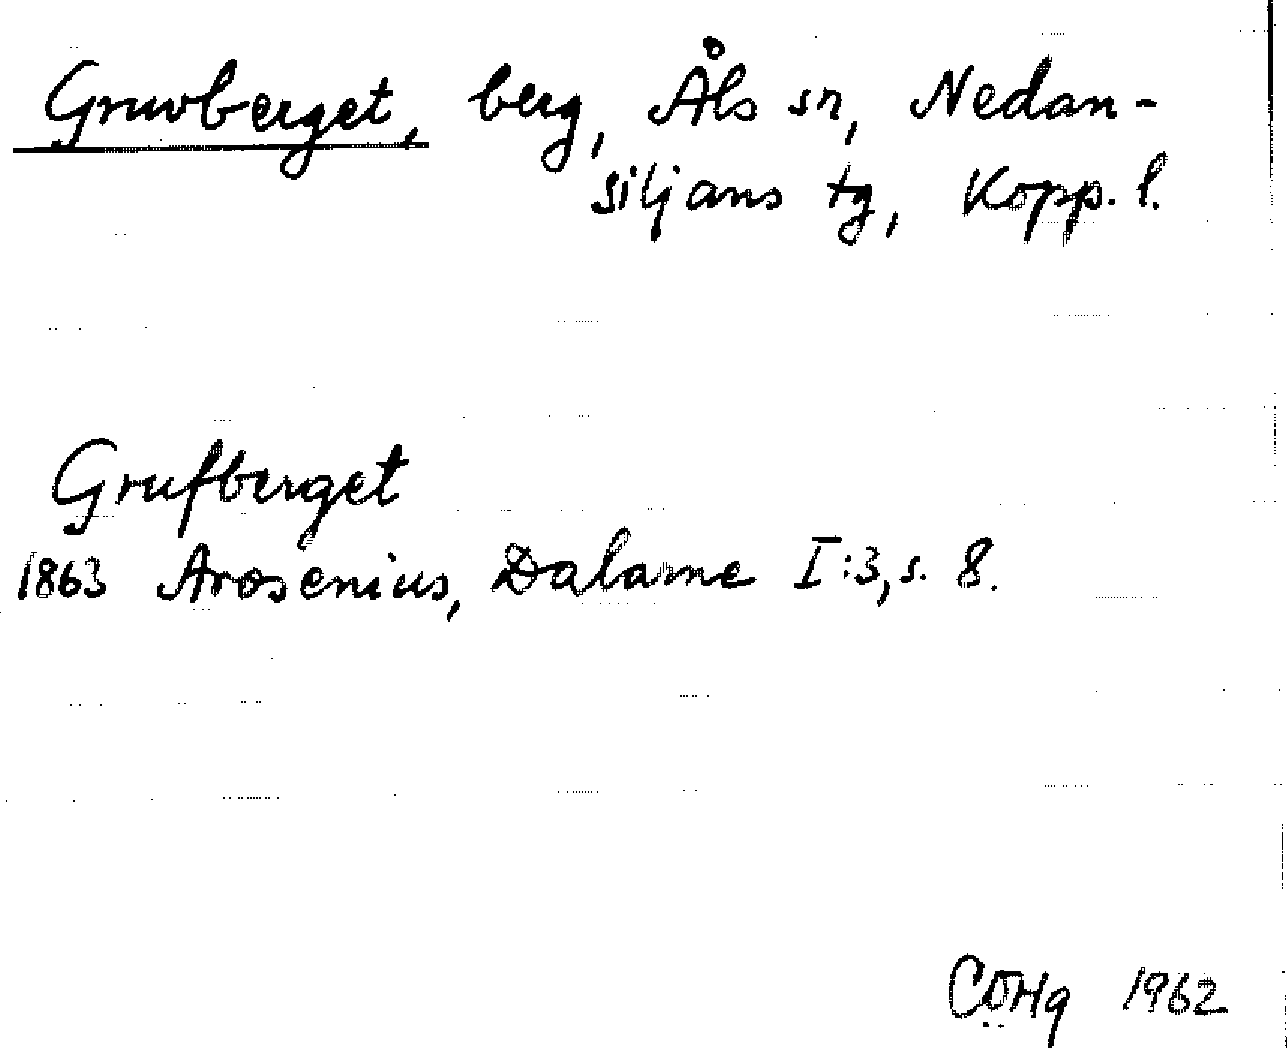 Gruvberget, berg, Åls sn, Nedan-
siljans tg, Kopp. l.
Grufberget
1863 Arosenius, Dalarne I:3, s. 8.
1962